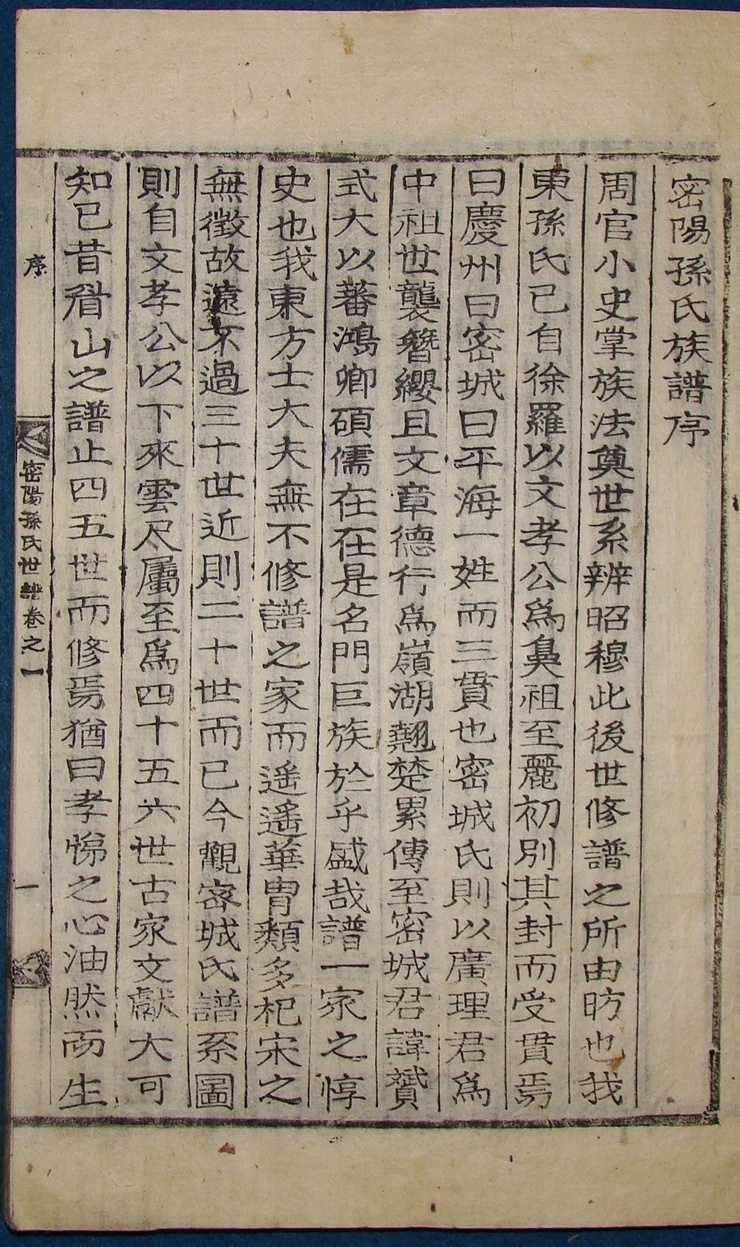 密陽孫氏族譜序
周官小史掌族法奠世系辨昭穆此後世修譜之所由昉也我
東孫氏已自徐羅以文孝公爲鼻祖至麗初別其封而受貫焉
曰慶州曰密城曰平海一姓而三貫也密城氏則以廣理君爲
中祖世襲簪纓且文章德行爲嶺湖翹楚累傳至密城君諱贇
式大以蕃鴻卿碩儒在在是名門巨族於乎盛哉譜一家之惇
史也我東方士大夫無不修譜之家而遙遙華冑類多杞宋之
無徵故遠不過三十世近則二十世而已今觀密城氏譜系圖
則自文孝公以下來雲尺屬至爲四十五六世古家文獻大可
知已昔眉山之譜止四五世而修焉猶曰孝悌之心油然而生
序
密陽孫氏世譜卷之一
一